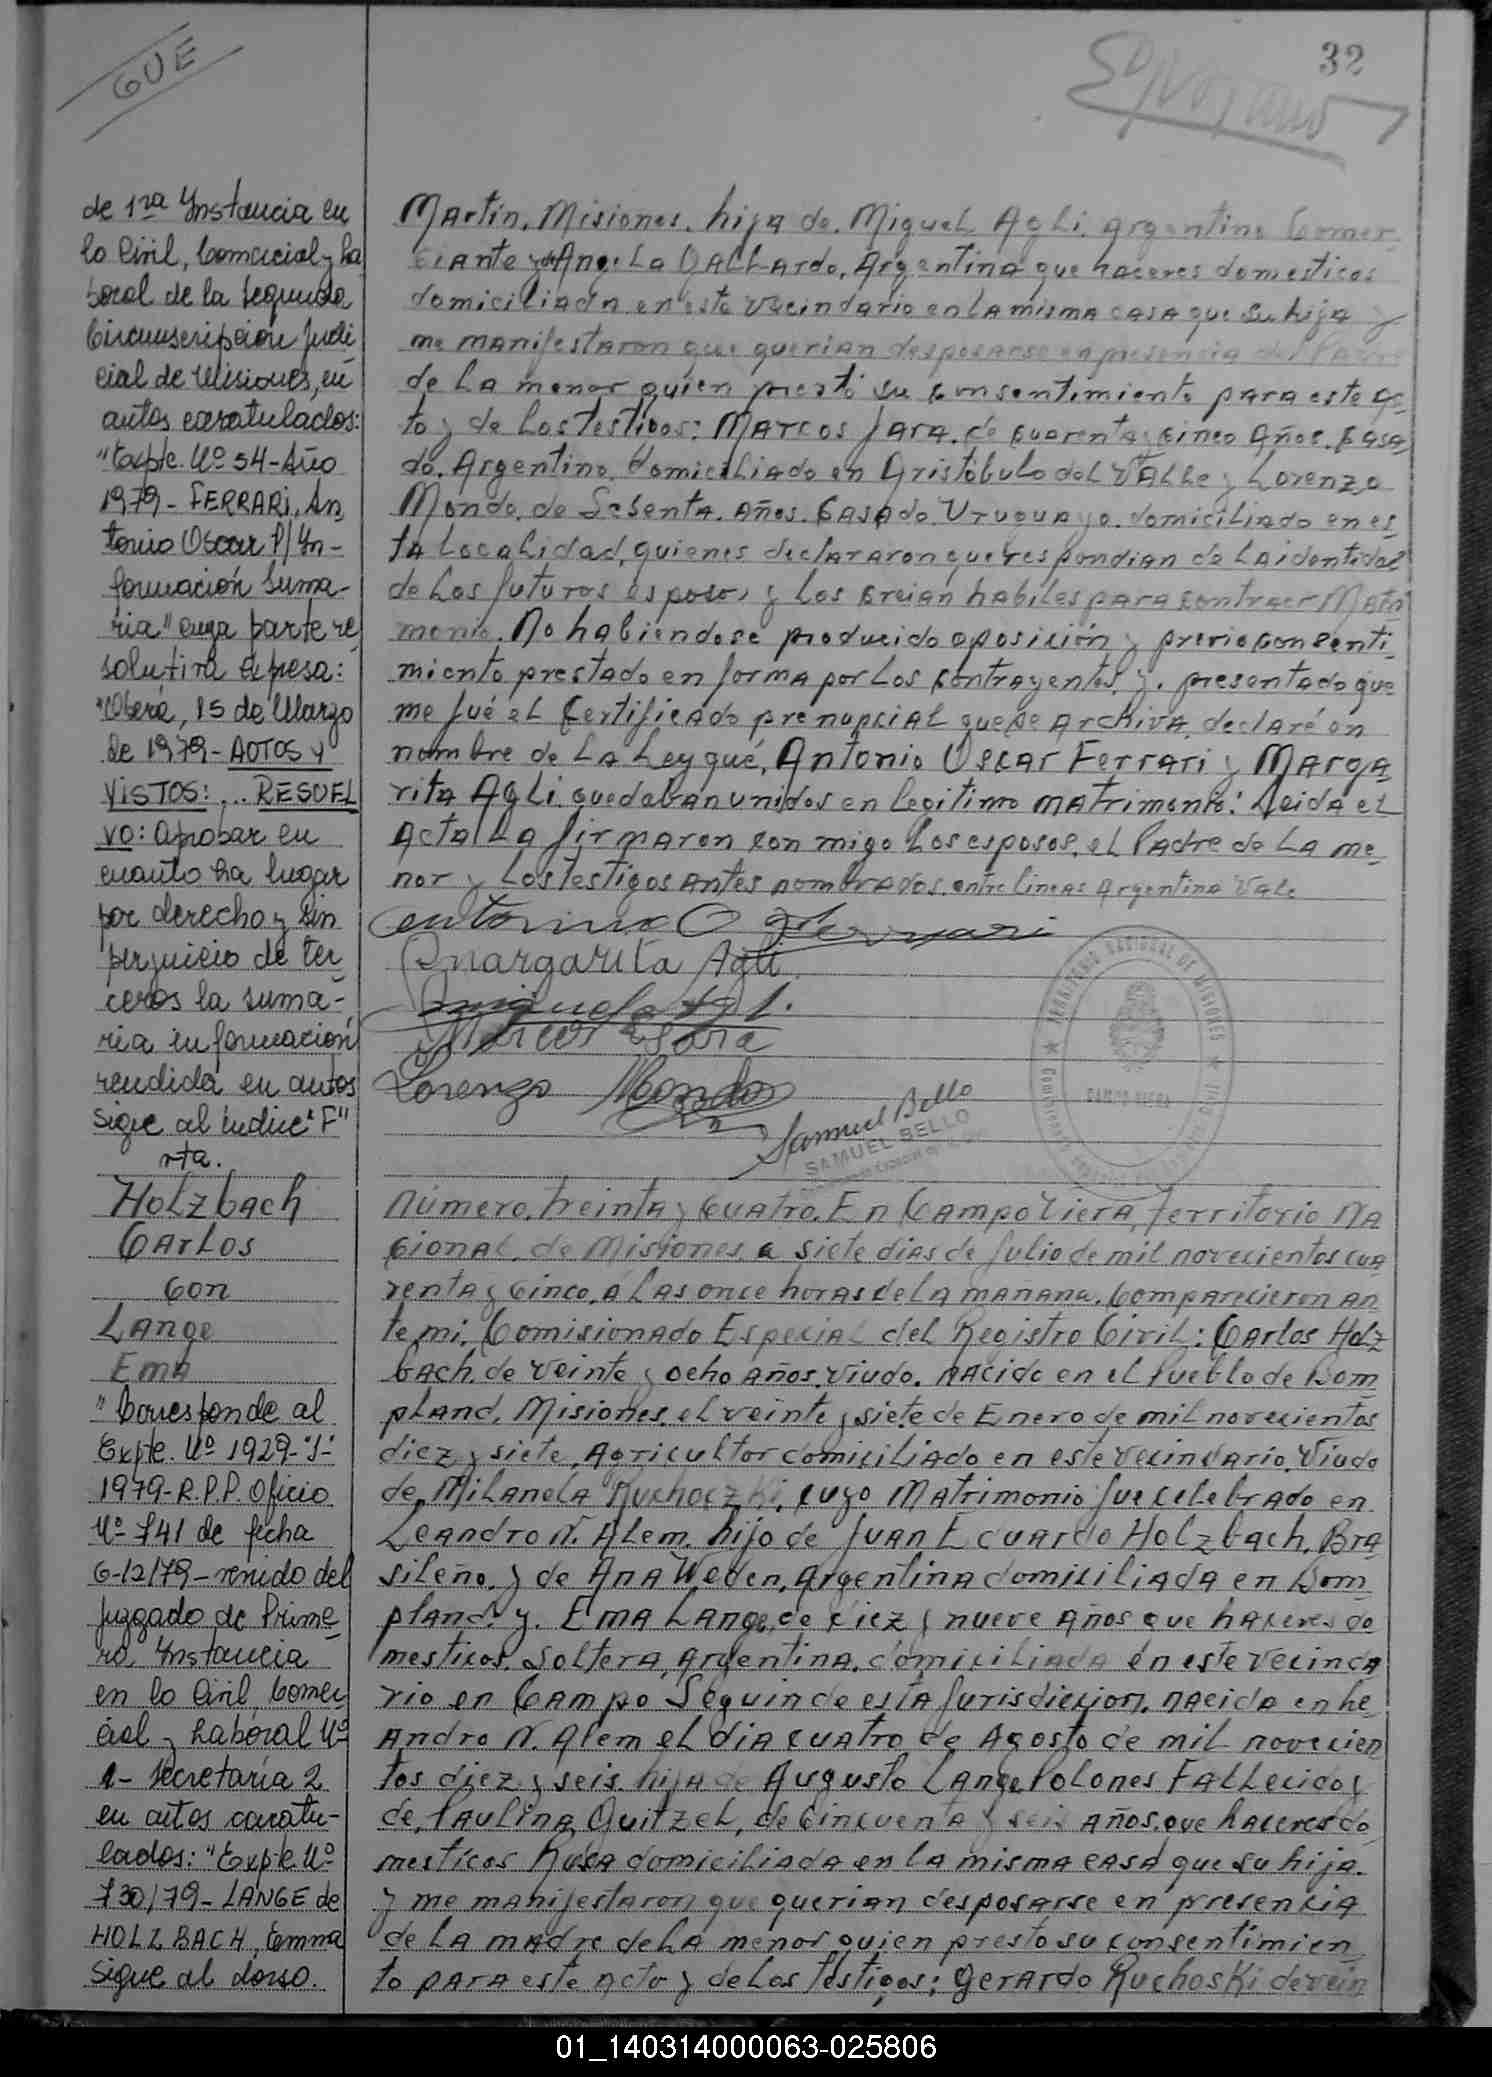 GUE
32
de 1ra Instancia en
lo Civil, Comercial y La
boral de la Segunda
Circunscripción Judi
cial de Misiones, en
autos caratulados:
"Expte. Nº 54-Año
1979- FERRARI, An
tonio Oscar P/ In-
formación Suma-
ria" cuya parte re
solutiva expresa:
"Oberá, 15 de Marzo
de 1979- AUTOS Y
VISTOS: ... RESUEL
VO: Aprobar en
cuanto ha lugar
por derecho y sin
perjuicio de ter
ceros la suma-
ria información
rendida en autos
Sigue al Indice "F"
rta.
Holzbach
Carlos
con
Lange
Ema
"Corresponde al
Expte. Nº 1929-"J"-
1979-R.P.P. Oficio
Nº 741 de fecha
6-12/79- venido del
juzgado de Prime
ro, Instancia
en lo Civil, Comer
cial y Laboral Nº
1- Secretaría 2
en autos caratu-
lados: "Expte. Nº
730/79- LANGE de
HOLZBACH, Emma
Sigue al dorso.
Martín, Misiones, hija de Miguel Agli, Argentino Comer-
ciante y de Angela Gallardo, Argentina que haceres domesticos
domiciliada en este vecindario en la misma casa que su hija y
me manifestaron que querian desposarse en presencia del Padre
de la menor quien prestó su consentimiento para este ac-
to y de los testigos: Marcos Jara, de cuarenta y cinco Años, casa
do, Argentino, domiciliado en Aristóbulo del Valle y Lorenzo
Mondo, de Sesenta, años, Casado, Uruguayo, domiciliado en es
ta Localidad, quienes declararon que respondian de la identidad
de los futuros esposos y los creian habiles para contraer Matri
monio. No habiendose producido oposición y previo consenti-
miento prestado en forma por los contrayentes, y presentado que
me fué el Certificado prenupcial que se archiva, declaré en
nombre de la Ley qué, Antonio Oscar Ferrari y Marga
rita Agli quedaban unidos en legitimo matrimonio: Leida el
Acta La firmaron conmigo los esposos, el Padre de la me-
nor y los testigos antes nombrados, entre lineas Argentina Vale
Antonio O Ferrari
Margarita Agli
Miguel Agli.
Marcos Jara
Lorenzo Mondo
Samuel Bello
SAMUEL BELLO
TERRITORIO NACIONAL DE MISIONES
CAMPO VIERA
Número, treinta y cuatro. En Campo Viera, Territorio Na
cional, de Misiones a siete dias de Julio de mil novecientos cua
renta y cinco, á las once horas de la mañana, Comparecieron an
te mi, Comisionado Especial del Registro Civil: Carlos Holz
bach, de veinte y ocho años, viudo, nacido en el Pueblo de Bom
pland, Misiones, el veinte y siete de Enero de mil novecientos
diez y siete, Agricultor domiciliado en este vecindario, Viudo
de Milanela Ruchoczki, cuyo Matrimonio fue celebrado en
Leandro N. Alem, hijo de Juan Eduardo Holzbach, Bra
sileño, y de Ana Weden, Argentina domiciliada en Bom
pland, y. Ema Lange, de diez y nueve años que haceres do
mesticos, soltera, Argentina, domiciliada en este vecinda
rio en Campo Seguin de esta Jurisdiccion, nacida en Le
Andro N. Alem el dia cuatro de Agosto de mil novecien
tos diez y seis, hija de Augusto Lange Polones Fallecido y
de, Paulina Quitzel, de cincuenta y seis años, que haceres do
mesticos Rusa domiciliada en la misma casa que su hija.
y me manifestaron que querian desposarse en presencia
de la madre de la menor quien presto su consentimien
to para este acto y de los testigos: Gerardo Ruchoski de vein
01_140314000063-025806